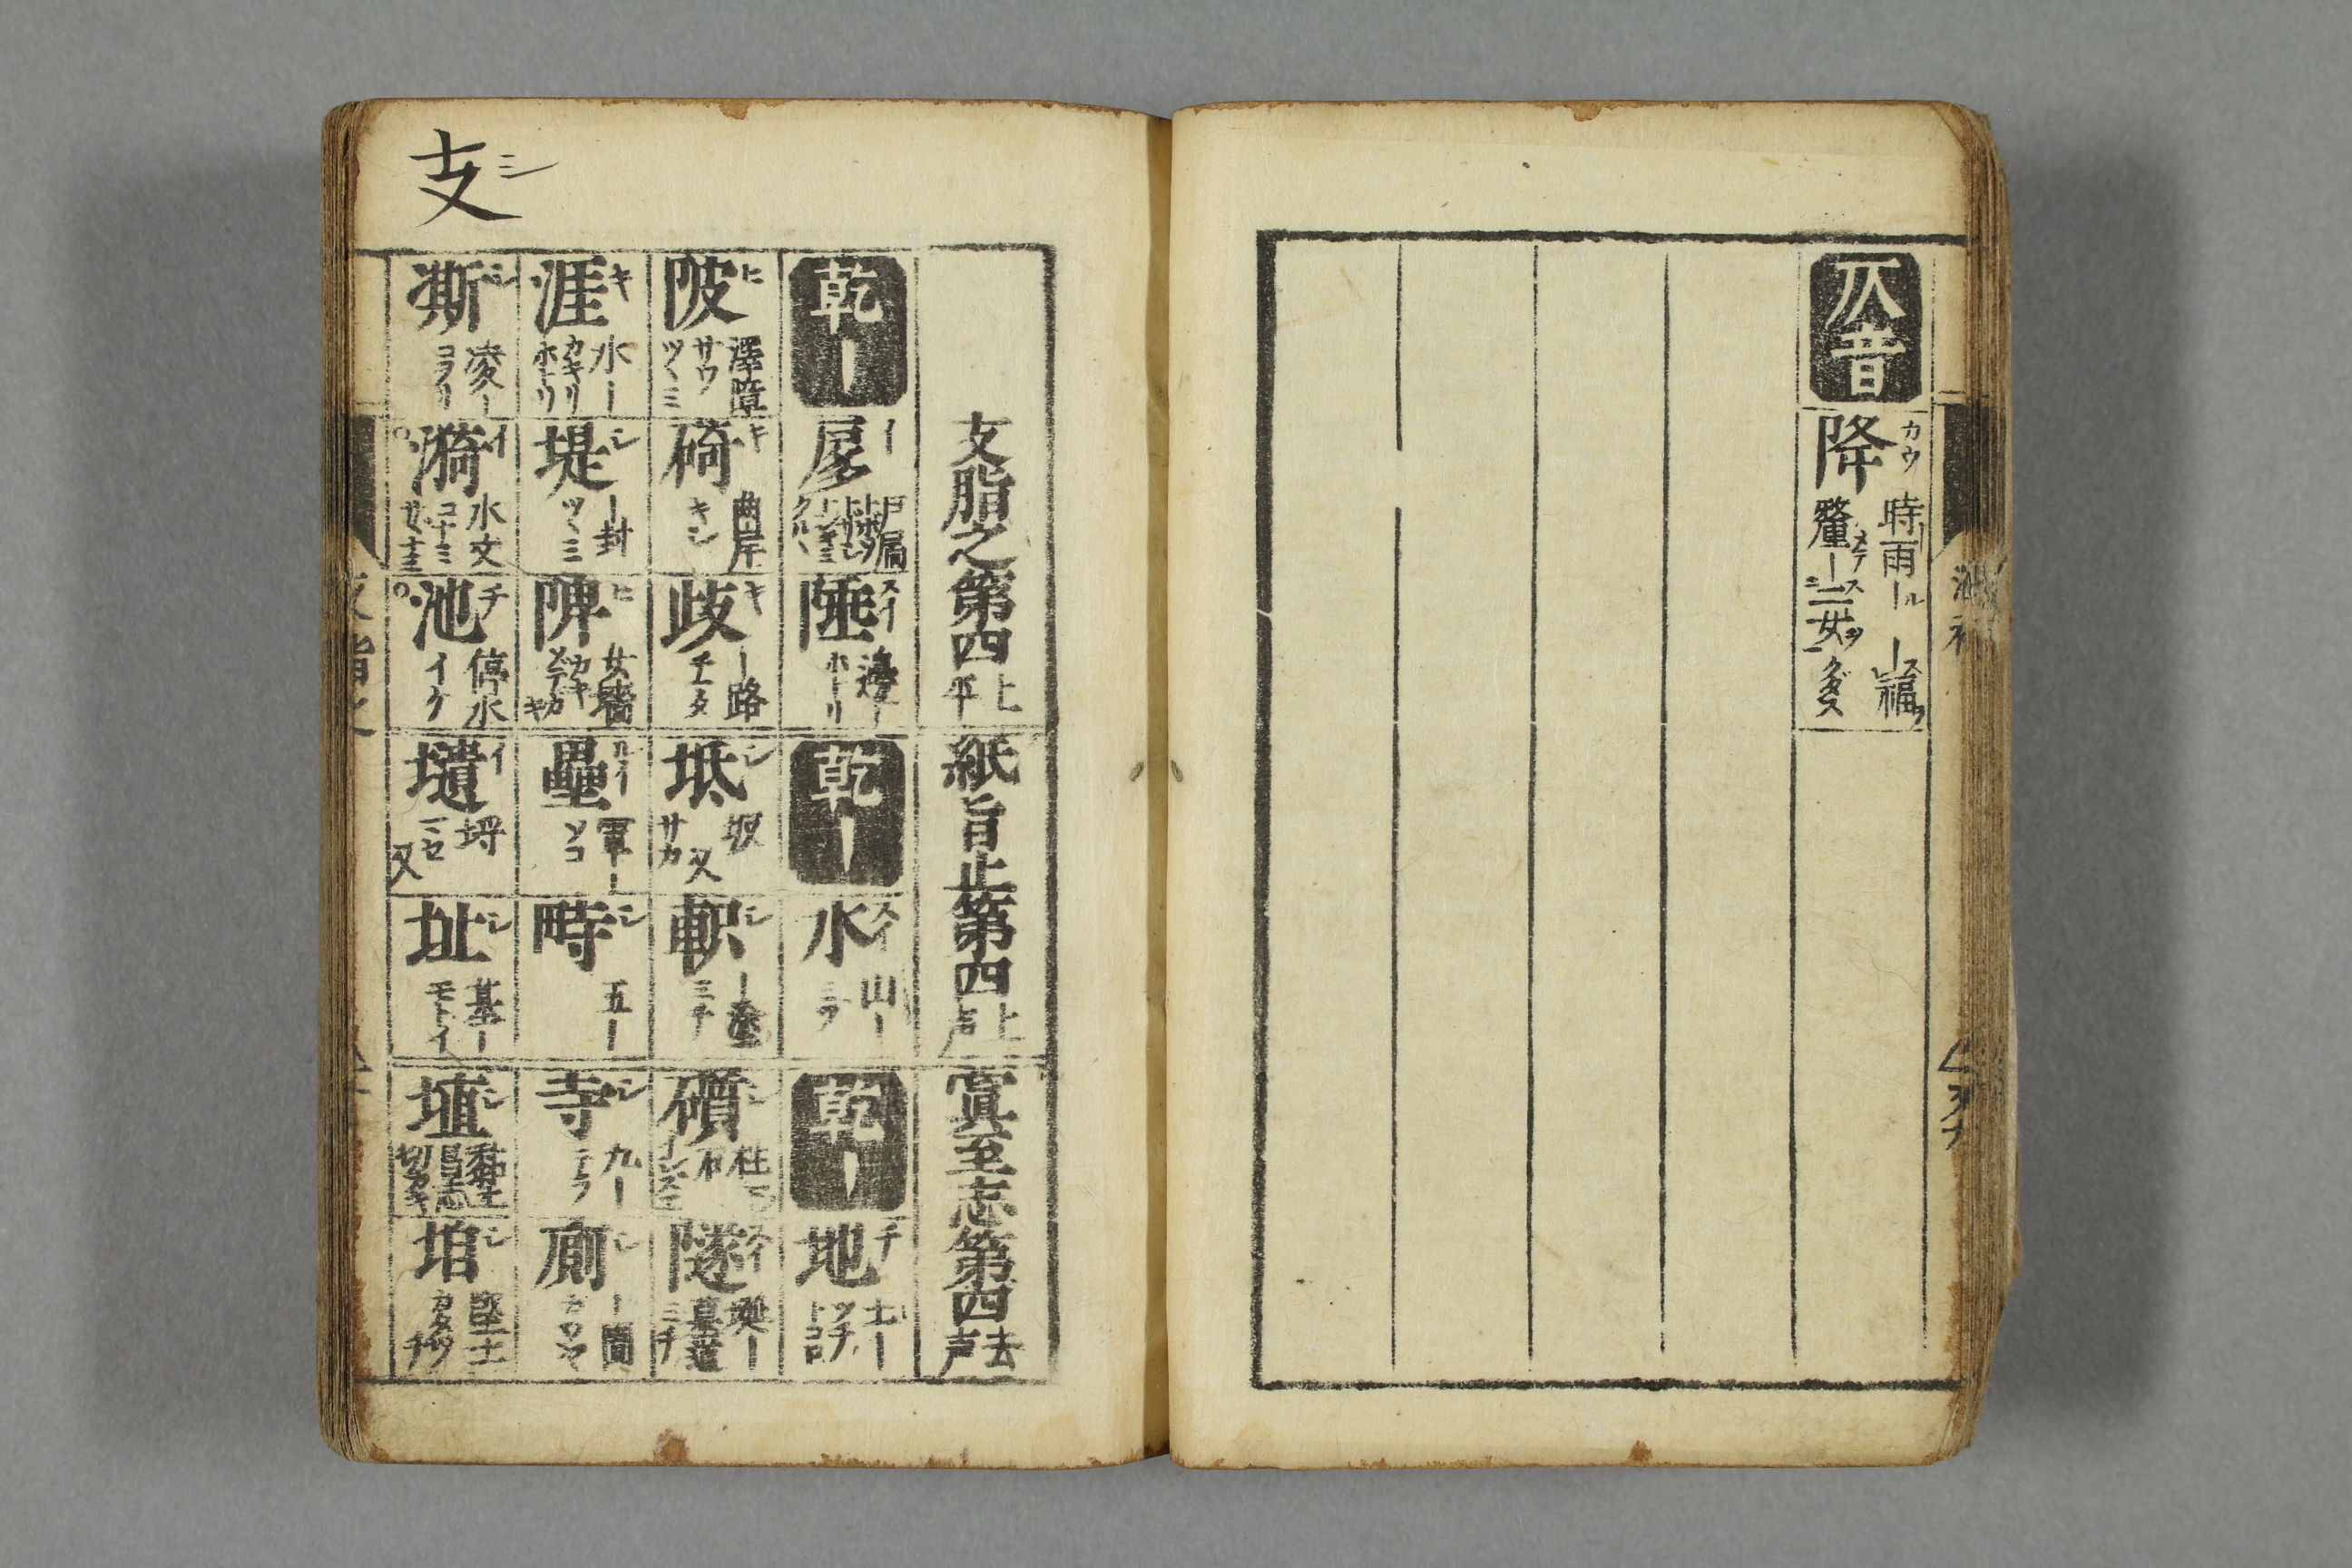 降 カウ
時雨ール ース福ヲ
釐ーニ女ヲ クダス
支 シ
支脂之第四 上平
紙旨止第四 上声
寘至志第四 去声
乾ー
扅 イ
陲 スイ 邉ー ホトリ
乾ー
水 スイ 山ー ミヅ
乾ー
地 チ 土ー ツチ トコロ
陂 ヒ 澤障 サワ ツヽミ
碕 キ 曲岸 キシ
歧 キ ー路 チマタ
坻 シ 坂 又 サカ
軹 シ ー塗 ミチ
礩 シ 柱下石 イシズヱ
隧 スイ 墓道 ミチ
涯 キ 水ー カキリ ホトリ
堤 シ ー封 ツヽミ
陴 ヒ 女墻
壘 ルイ 軍ー ソコ
畤 シ 五ー
寺 シ 九ー テラ
廁 シ ー圊 カワヤ
凘 シ 凌ー コヲリ
漪 イ 水文 コナミ サヾナミ
池 チ 停水 イケ
壝 イ 埒 又
址 シ 基ー モトイ
埴 シ 黏土 昌志切
垍 シ 堅土 カタツチ